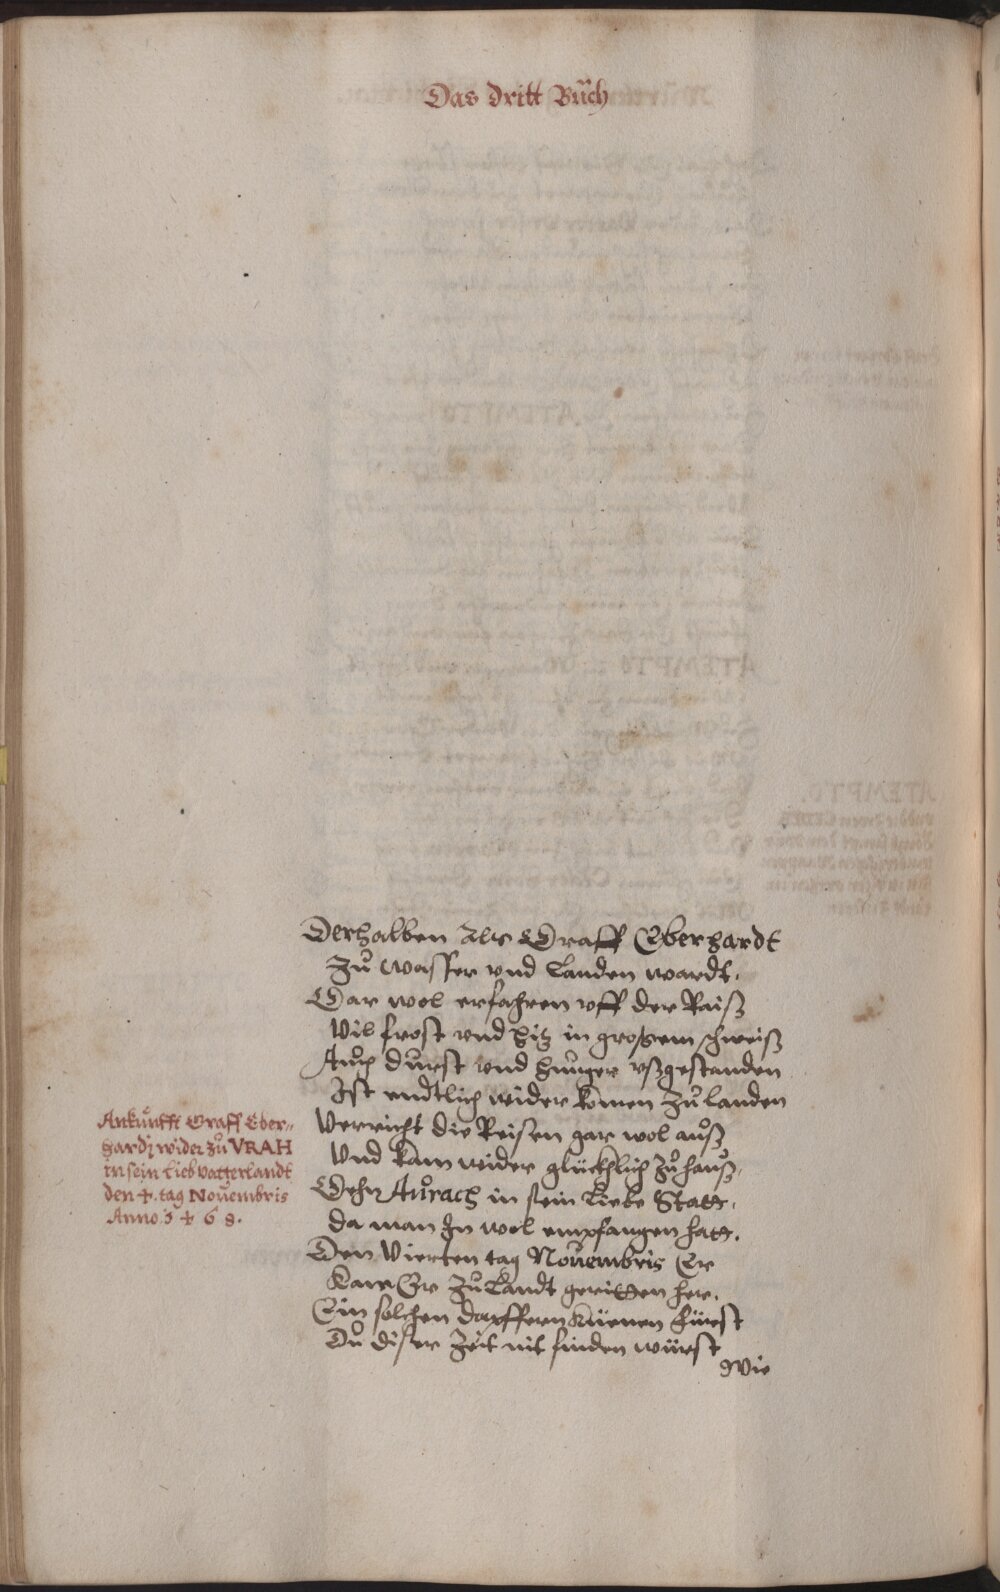 Das dritt Bůch
Derhalben Alls Graff Eberhardt
Zů wasser vnd Landen wardt,
Gar wol erfahren vff der Raiß
Vil frost vnd hitz in großem schweiß
Auch durst vnd hunger vßgestanden
Ist endtlich wider komen zů landen
Verricht die Reisen gar wol auß
Vnd kam wider glücklich zů hauß,
Gehn Aurach in sein Liebe Statt,
da man In wol empfangen hatt.
Den Vierten tag Nouembris Er
Kam Er zů Landt geritten her,
Ein solchen dapffern küenen fürst
Du diser Zeit nit finden würst
Wie
Ankunfft Graff Eber-
hardj wider zů VRAH
in sein lieb vatterlandt
den 4. tag Nouembris
Anno 1468.